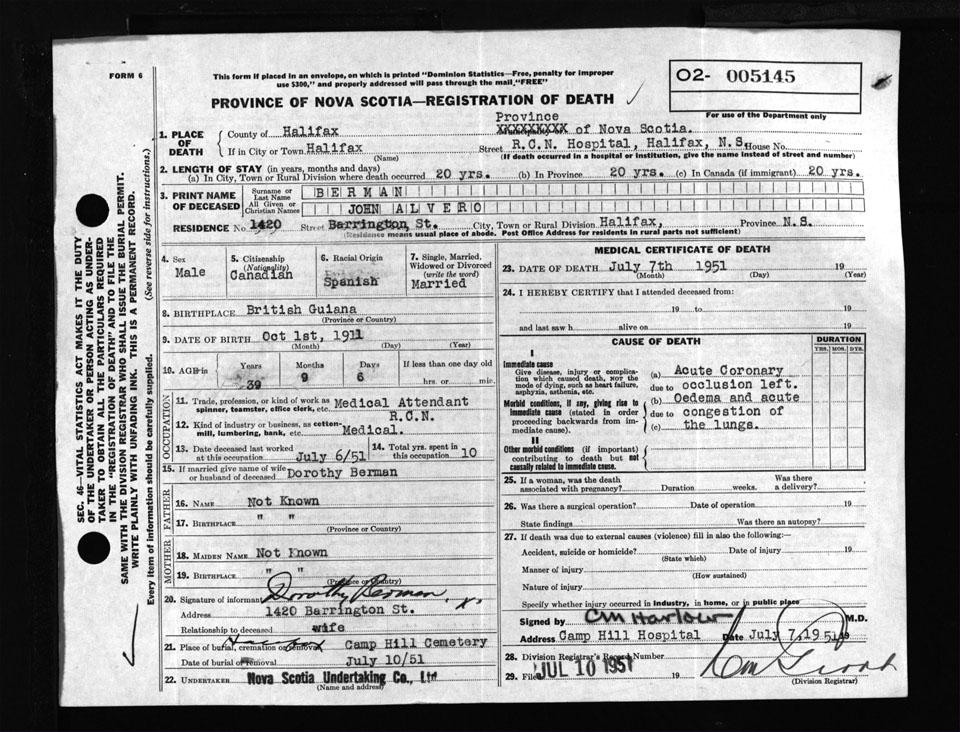 FORM 6
This form if placed in an envelope, on which is printed "Dominion Statistics—Free, penalty for improper
use $300," and properly addressed will pass through the mail "FREE"
O2- 005145
For use of the Department only
PROVINCE OF NOVA SCOTIA—REGISTRATION OF DEATH
Province
1. PLACE OF DEATH
County of Halifax
XXXXXXXXX of Nova Scotia.
If in City or Town Halifax (Name)
Street R.C.N. Hospital, Halifax, N.S. House No.
(If death occurred in a hospital or institution, give the name instead of street and number)
2. LENGTH OF STAY (in years, months and days)
(a) In City, Town or Rural Division where death occurred 20 yrs. (b) In Province 20 yrs. (c) In Canada (if immigrant) 20 yrs.
3. PRINT NAME OF DECEASED
Surname or Last Name BERMAN
All Given or Christian Names JOHN ALVERO
RESIDENCE No. 1420 Street Barrington, St. City, Town or Rural Division Halifax, Province N.S.
(Residence means usual place of abode. Post Office Address for residents in rural parts not sufficient)
4. Sex
Male
5. Citizenship (Nationality)
Canadian
6. Racial Origin
Spanish
7. Single, Married, Widowed or Divorced (write the word)
Married
8. BIRTHPLACE British Guiana
(Province or Country)
9. DATE OF BIRTH Oct 1st, 1911
(Month) (Day) (Year)
10. AGE in
Years Months Days If less than one day old
39 9 6 hrs. or min.
OCCUPATION
11. Trade, profession, or kind of work as spinner, teamster, office clerk, etc. Medical Attendant
R.C.N.
12. Kind of industry or business, as cotton-mill, lumbering, bank, etc. Medical.
13. Date deceased last worked at this occupation July 6/51
14. Total yrs. spent in this occupation 10
15. If married give name of wife or husband of deceased Dorothy Berman
FATHER
16. NAME Not Known
17. BIRTHPLACE " "
(Province or Country)
MOTHER
18. MAIDEN NAME Not Known
19. BIRTHPLACE " "
(Province or Country)
20. Signature of informant Dorothy Berman. x.
Address 1420 Barrington St.
Relationship to deceased wife
21. Place of burial, cremation or removal Halifax Camp Hill Cemetery
Date of burial or removal July 10/51
22. UNDERTAKER Nova Scotia Undertaking Co., Ltd
(Name and address)
MEDICAL CERTIFICATE OF DEATH
23. DATE OF DEATH July 7th 1951 19
(Month) (Day) (Year)
24. I HEREBY CERTIFY that I attended deceased from:
19 to 19
and last saw h alive on 19
CAUSE OF DEATH
DURATION
YRS. MOS. DYS.
I
Immediate cause
Give disease, injury or complication which caused death, NOT the mode of dying, such as heart failure, asphyxia, asthenia, etc.
(a) Acute Coronary
due to occlusion left.
Morbid conditions, if any, giving rise to immediate cause (stated in order proceeding backwards from immediate cause).
(b) Oedema and acute
due to congestion of
(c) the lungs.
II
Other morbid conditions (if important) contributing to death but not causally related to immediate cause.
25. If a woman, was the death associated with pregnancy? Duration weeks. Was there a delivery?
26. Was there a surgical operation? Date of operation 19
State findings Was there an autopsy?
27. If death was due to external causes (violence) fill in also the following:—
Accident, suicide or homicide? Date of injury 19
(State which)
Manner of injury
(How sustained)
Nature of injury
Specify whether injury occurred in industry, in home, or in public place
Signed by CM Harlow M.D.
Address Camp Hill Hospital Date July 7, 19 51
28. Division Registrar's Record Number
29. Filed JUL 10 1951 19
(Division Registrar)
SEC. 46—VITAL STATISTICS ACT MAKES IT THE DUTY
OF THE UNDERTAKER OR PERSON ACTING AS UNDER-
TAKER TO OBTAIN ALL THE PARTICULARS REQUIRED
IN THE "REGISTRATION OF DEATH" AND TO FILE THE
SAME WITH THE DIVISION REGISTRAR WHO SHALL ISSUE THE BURIAL PERMIT.
WRITE PLAINLY WITH UNFADING INK. THIS IS A PERMANENT RECORD.
Every item of information should be carefully supplied. (See reverse side for instructions.)